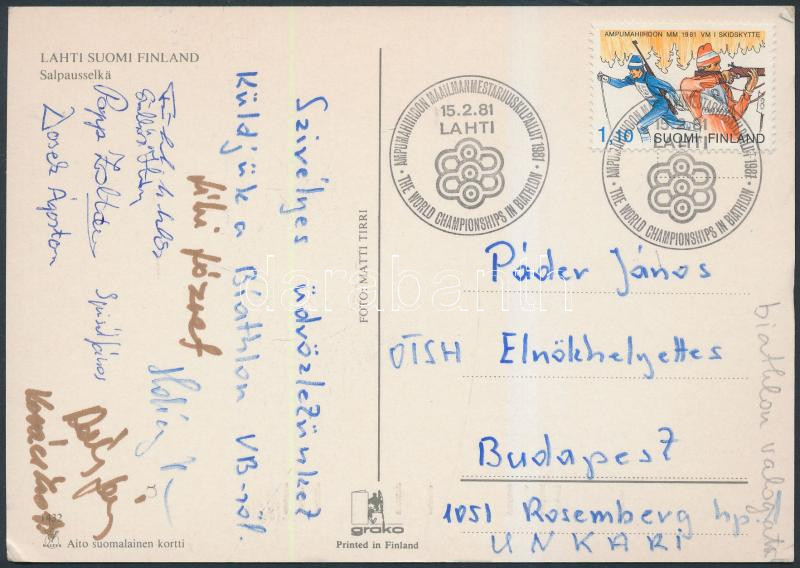 LAHTI SUOMI FINLAND
Salpausselkä
Szívélyes üdvözletünket
Küldjük a Biathlon VB-ről.
Papp Zoltán
Dosek Ágoston
Spisák János
FOTO: MATTI TIRRI
Aito suomalainen kortti
grako
Printed in Finland
AMPUMAHIIHDON MAAILMANMESTARUUSKILPAILUT 1981
15.2.81
LAHTI
THE WORLD CHAMPIONSHIPS IN BIATHLON
AMPUMAHIIHDON MM 1981 VM I SKIDSKYTTE
1,10 SUOMI FINLAND
15.2.81
LAHTI
THE WORLD CHAMPIONSHIPS IN BIATHLON
Páder János
OTSH Elnökhelyettes
Budapest
1051 Rosemberg hp.
UNKARI
biathlon válogatott
darabanth